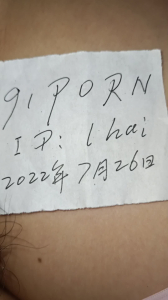 91 PORN
IP: lhai
2022年7月26日